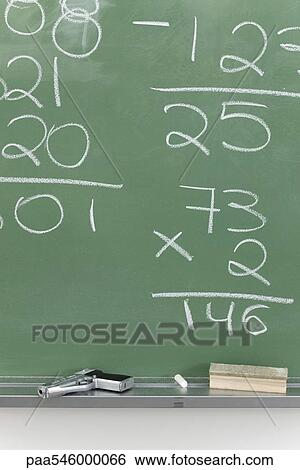 88
-123
21
25
20
01
73
x 2
146
FOTOSEARCH
paa546000066 www.fotosearch.com